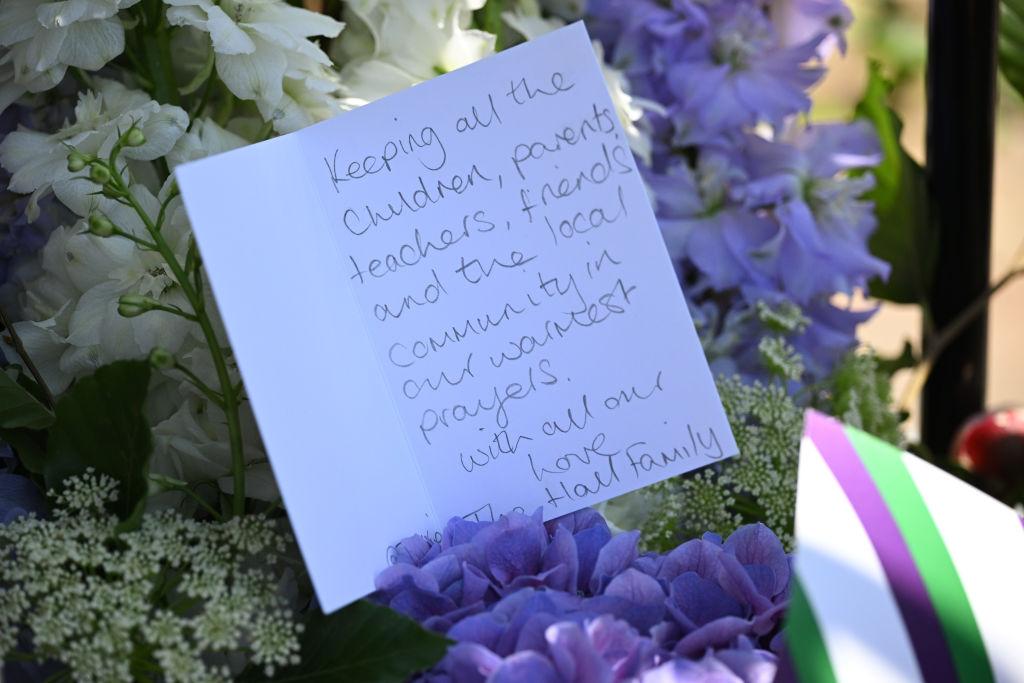 Keeping all the
children, parents,
teachers, friends
and the local
community in
our warmest
prayers.
with all our
love
The Hall Family